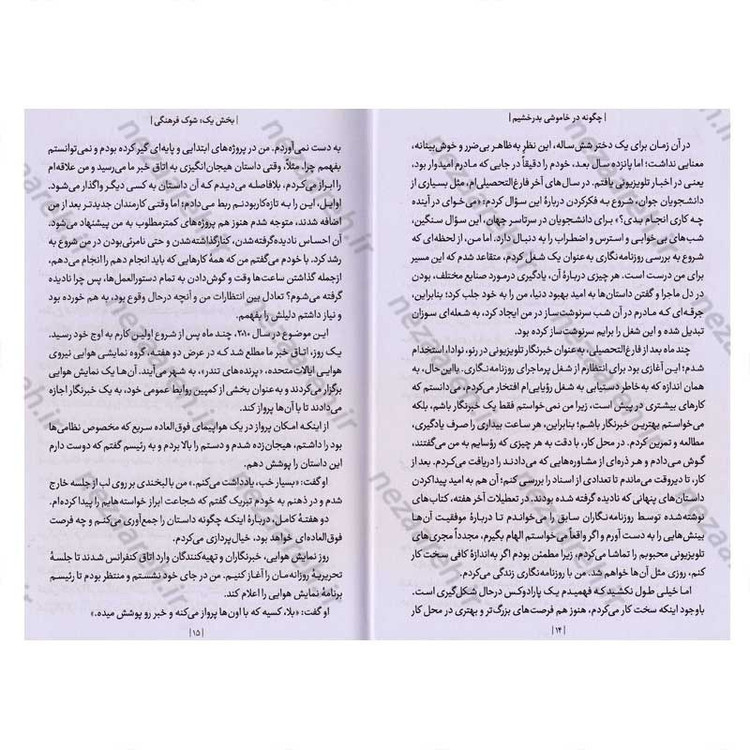 | چگونه در خاموشی بدرخشیم |
در آن زمان برای یک دختر شش‌ساله، این نظر به‌ظاهر بی‌ضرر و خوش‌بینانه،
معنایی نداشت؛ اما پانزده سال بعد، خودم را دقیقاً در جایی که مادرم امیدوار بود،
یعنی در اخبار تلویزیونی یافتم. در سال‌های آخر فارغ‌التحصیلی‌ام، مثل بسیاری از
دانشجویان جوان، شروع به فکرکردن دربارهٔ این سؤال کردم: «می‌خوای در آینده
چه کاری انجام بدی؟» برای دانشجویان در سرتاسر جهان، این سؤال سنگین،
شب‌های بی‌خوابی و استرس و اضطراب را به دنبال دارد. اما من، از لحظه‌ای که
شروع به بررسی روزنامه‌نگاری به‌عنوان یک شغل کردم، متقاعد شدم که این مسیر
برای من درست است. هر چیزی دربارهٔ آن، یادگیری درمورد صنایع مختلف، بودن
در دل ماجرا و گفتن داستان‌ها به امید بهبود دنیا، من را به خود جلب کرد؛ بنابراین،
جرقه‌ای که مادرم در آن شب سرنوشت‌ساز در من ایجاد کرد، به شعله‌ای سوزان
تبدیل شده و این شغل را برایم سرنوشت‌ساز کرده بود.
چند ماه بعد از فارغ‌التحصیلی، به‌عنوان خبرنگار تلویزیونی در رنو، نوادا، استخدام
شدم؛ این آغازی بود برای انتظارم از شغل پرماجرای روزنامه‌نگاری. بااین‌حال، به
همان اندازه که به‌خاطر دستیابی به شغل رؤیایی‌ام افتخار می‌کردم، می‌دانستم که
کارهای بیشتری در پیش است، زیرا من نمی‌خواستم فقط یک خبرنگار باشم، بلکه
می‌خواستم بهترین خبرنگار باشم؛ بنابراین، هر ساعت بیداری را صرف یادگیری،
مطالعه و تمرین کردم. در محل کار، با دقت به هر چیزی که رؤسایم به من می‌گفتند،
گوش می‌دادم و هر ذره‌ای از مشاوره‌هایی که می‌دادند را دریافت می‌کردم. بعد از
کار، تا دیروقت می‌ماندم تا تعدادی از اسناد را بررسی کنم؛ آن هم به امید پیداکردن
داستان‌های پنهانی که نادیده گرفته شده بودند. در تعطیلات آخر هفته، کتاب‌های
نوشته‌شده توسط روزنامه‌نگاران سابق را می‌خواندم تا دربارهٔ موفقیت آن‌ها
بینش‌هایی را به دست آورم و اگر واقعاً می‌خواستم الهام بگیرم، مجدداً مجری‌های
تلویزیونی محبوبم را تماشا می‌کردم، زیرا مطمئن بودم اگر به‌اندازهٔ کافی سخت کار
کنم، روزی مثل آن‌ها خواهم شد. من با روزنامه‌نگاری زندگی می‌کردم.
اما خیلی طول نکشید که فهمیدم یک پارادوکس درحال شکل‌گیری است.
باوجود اینکه سخت کار می‌کردم، هنوز هم فرصت‌های بزرگ‌تر و بهتری در محل کار
| ۱۴ |
| بخش یک: شوک فرهنگی |
به دست نمی‌آوردم. من در پروژه‌های ابتدایی و پایه‌ای گیر کرده بودم و نمی‌توانستم
بفهمم چرا. مثلاً، وقتی داستان هیجان‌انگیزی به اتاق خبر ما می‌رسید و من علاقه‌ام
را ابراز می‌کردم، بلافاصله می‌دیدم که آن داستان به کسی دیگر واگذار می‌شود.
اوایل، این را به تازه‌کاربودنم ربط می‌دادم؛ اما وقتی کارمندان جدیدتر بعد از من
اضافه شدند، متوجه شدم هنوز هم پروژه‌های کمترمطلوب به من پیشنهاد می‌شود.
آن احساس نادیده‌گرفته‌شدن، کنارگذاشته‌شدن و حتی نامرئی‌بودن در من شروع به
رشد کرد. با خودم می‌گفتم من که همهٔ کارهایی که باید انجام دهم را انجام می‌دهم،
ازجمله گذاشتن ساعت‌ها وقت و گوش‌دادن به تمام دستورالعمل‌ها، پس چرا نادیده
گرفته می‌شوم؟ تعادل بین انتظارات من و آنچه درحال وقوع بود، به هم خورده بود
و نیاز داشتم دلیلش را بفهمم.
این موضوع در سال ۲۰۱۰، چند ماه پس از شروع اولین کارم به اوج خود رسید.
یک روز، اتاق خبر ما مطلع شد که در عرض دو هفته، گروه نمایشی هوایی نیروی
هوایی ایالات متحده، «پرنده‌های تندر»، به شهر می‌آیند. آن‌ها یک نمایش هوایی
برگزار می‌کردند و به‌عنوان بخشی از کمپین روابط عمومی خود، به یک خبرنگار اجازه
می‌دادند تا با آن‌ها پرواز کند.
از اینکه امکان پرواز در یک هواپیمای فوق‌العاده سریع که مخصوص نظامی‌ها
بود را داشتم، هیجان‌زده شدم و دستم را بالا بردم و به رئیسم گفتم که دوست دارم
این داستان را پوشش دهم.
او گفت: «بسیار خب، یادداشت می‌کنم.» من با لبخندی بر روی لب از جلسه خارج
شدم و در ذهنم به خودم تبریک گفتم که شجاعت ابراز خواسته‌هایم را پیدا کرده‌ام.
دو هفتهٔ کامل، دربارهٔ اینکه چگونه داستان را جمع‌آوری می‌کنم و چه فرصت
فوق‌العاده‌ای خواهد بود، خیال‌پردازی می‌کردم.
روز نمایش هوایی، خبرنگاران و تهیه‌کنندگان وارد اتاق کنفرانس شدند تا جلسهٔ
تحریریهٔ روزانه‌مان را آغاز کنیم. من در جای خود نشستم و منتظر بودم تا رئیسم
برنامهٔ نمایش هوایی را اعلام کند.
او گفت: «بلا، کسیه که با اون‌ها پرواز می‌کنه و خبر رو پوشش میده.»
| ۱۵ |
nezaardeh.ir